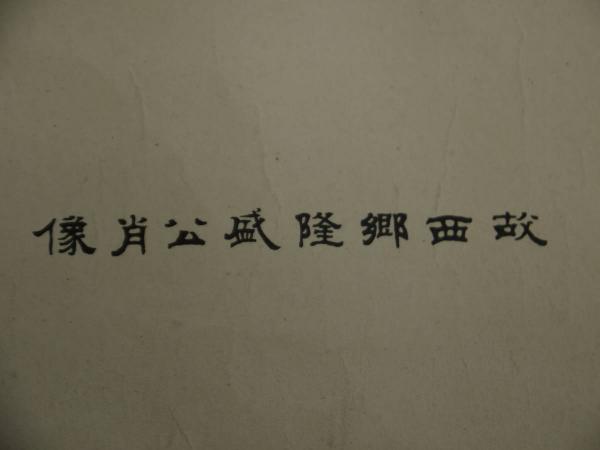 故西郷隆盛公肖像